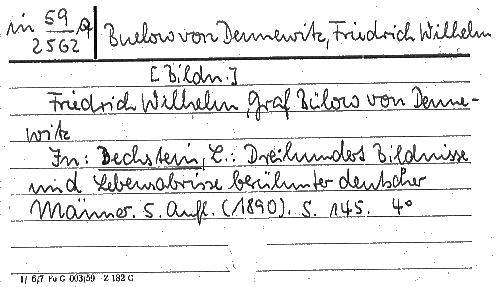 in 59/2562 a Buelow von Dennewitz, Friedrich Wilhelm
[Bildn.]
Friedrich Wilhelm, Graf Bülow von Denne-
witz
In: Bechstein, L.: Dreihundert Bildnisse
und Lebensabrisse berühmter deutscher
Männer. 5. Aufl. (1890). S. 145. 4°
1/ 6,7 Pu G 003/59 Z 182 C